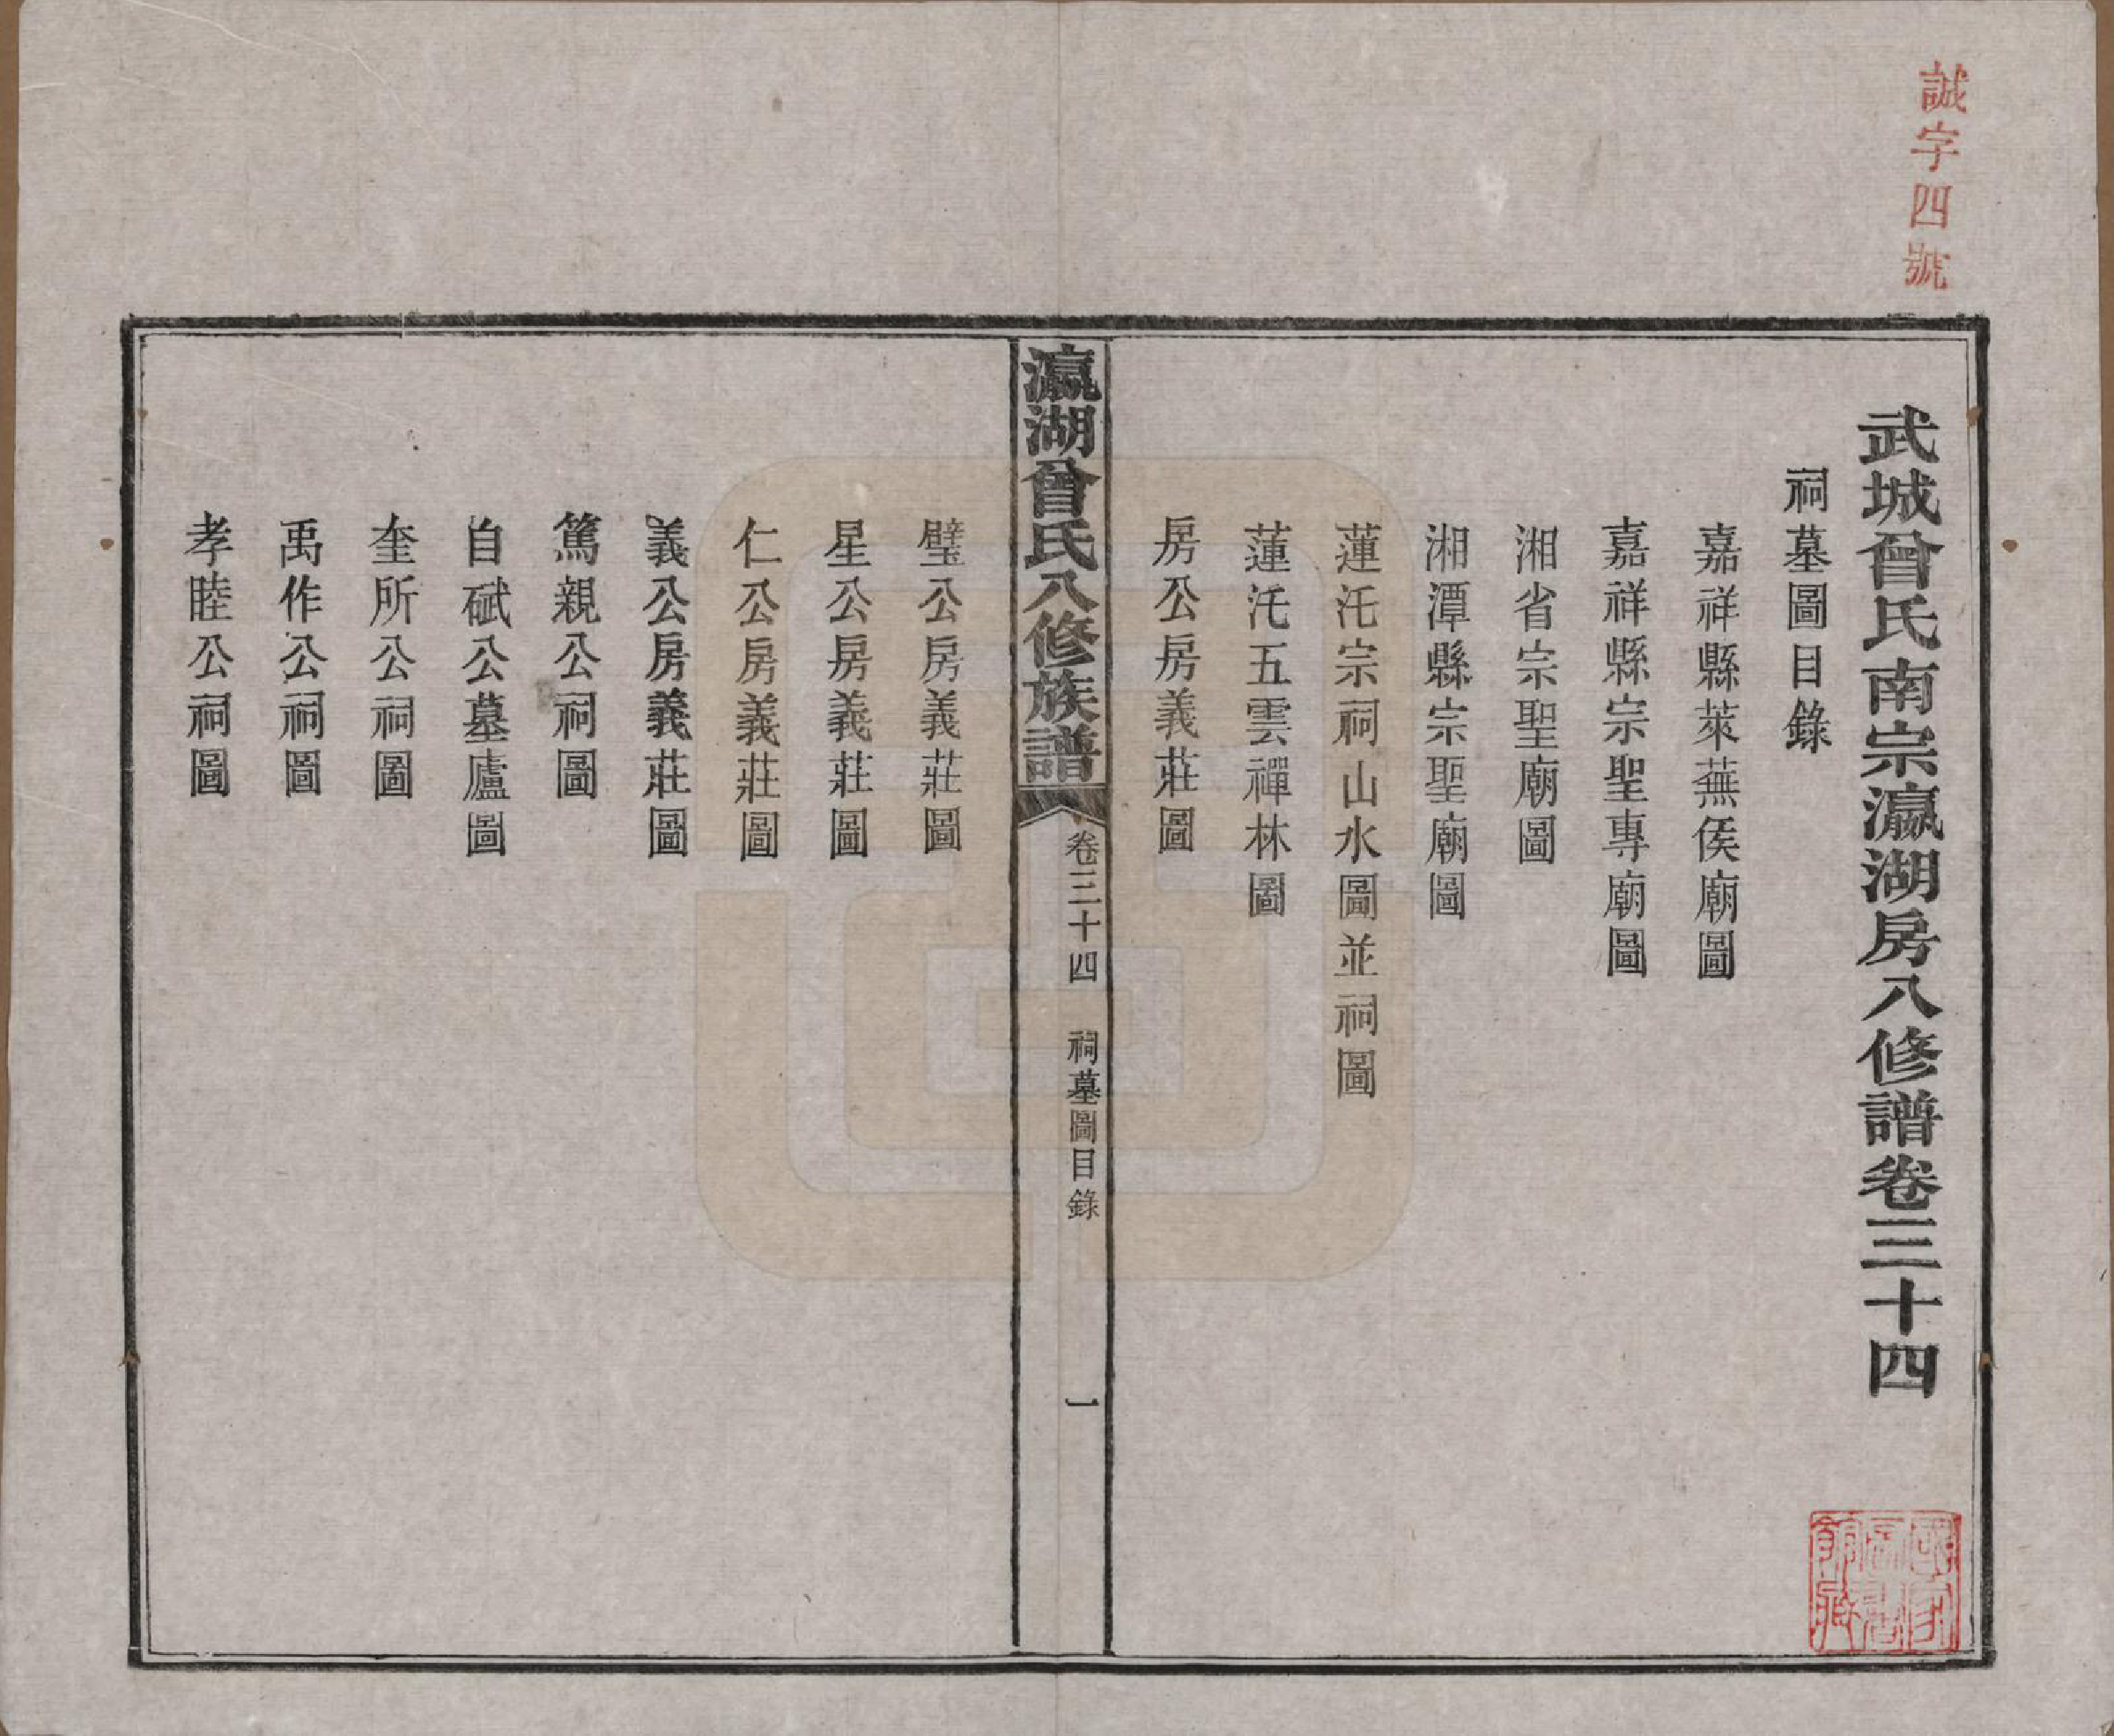 誠字四號
武城曾氏南宗瀛湖房八修譜卷三十四
祠墓圖目錄
嘉祥縣萊蕪侯廟圖
嘉祥縣宗聖專廟圖
湘省宗聖廟圖
湘潭縣宗聖廟圖
蓮汑宗祠山水圖並祠圖
蓮汑五雲禪林圖
房公房義莊圖
瀛湖曾氏八修族譜
卷三十四
祠墓圖目錄
一
璧公房義莊圖
星公房義莊圖
仁公房義莊圖
義公房義莊圖
篤親公祠圖
自碔公墓廬圖
奎所公祠圖
禹作公祠圖
孝睦公祠圖
國家圖書館藏